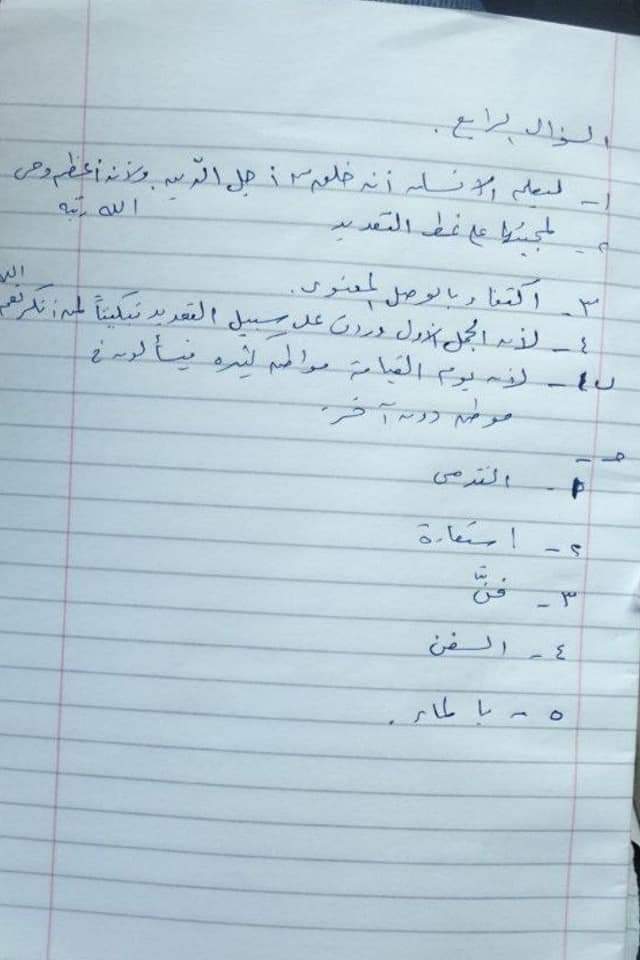 السؤال الرابع .
١- ليعلم الانسان أنه خلق من أجل الدين ولأنه أعظم وحي
الله رتبة
٢- لمجيئها على نمط التعديد
٣- اكتفاء بالوصل المعنوي .
٤- لأن الجمل الأول وردت على سبيل التعديد تبكيتاً لمن أنكر نعم الله
٥- لأن يوم القيامة مواطن كثيرة فيسألون في
موطن دون آخر .
حـ -
١-
٢- استعارة
٣- فنّ
٤- السفن
٥- بالماء .